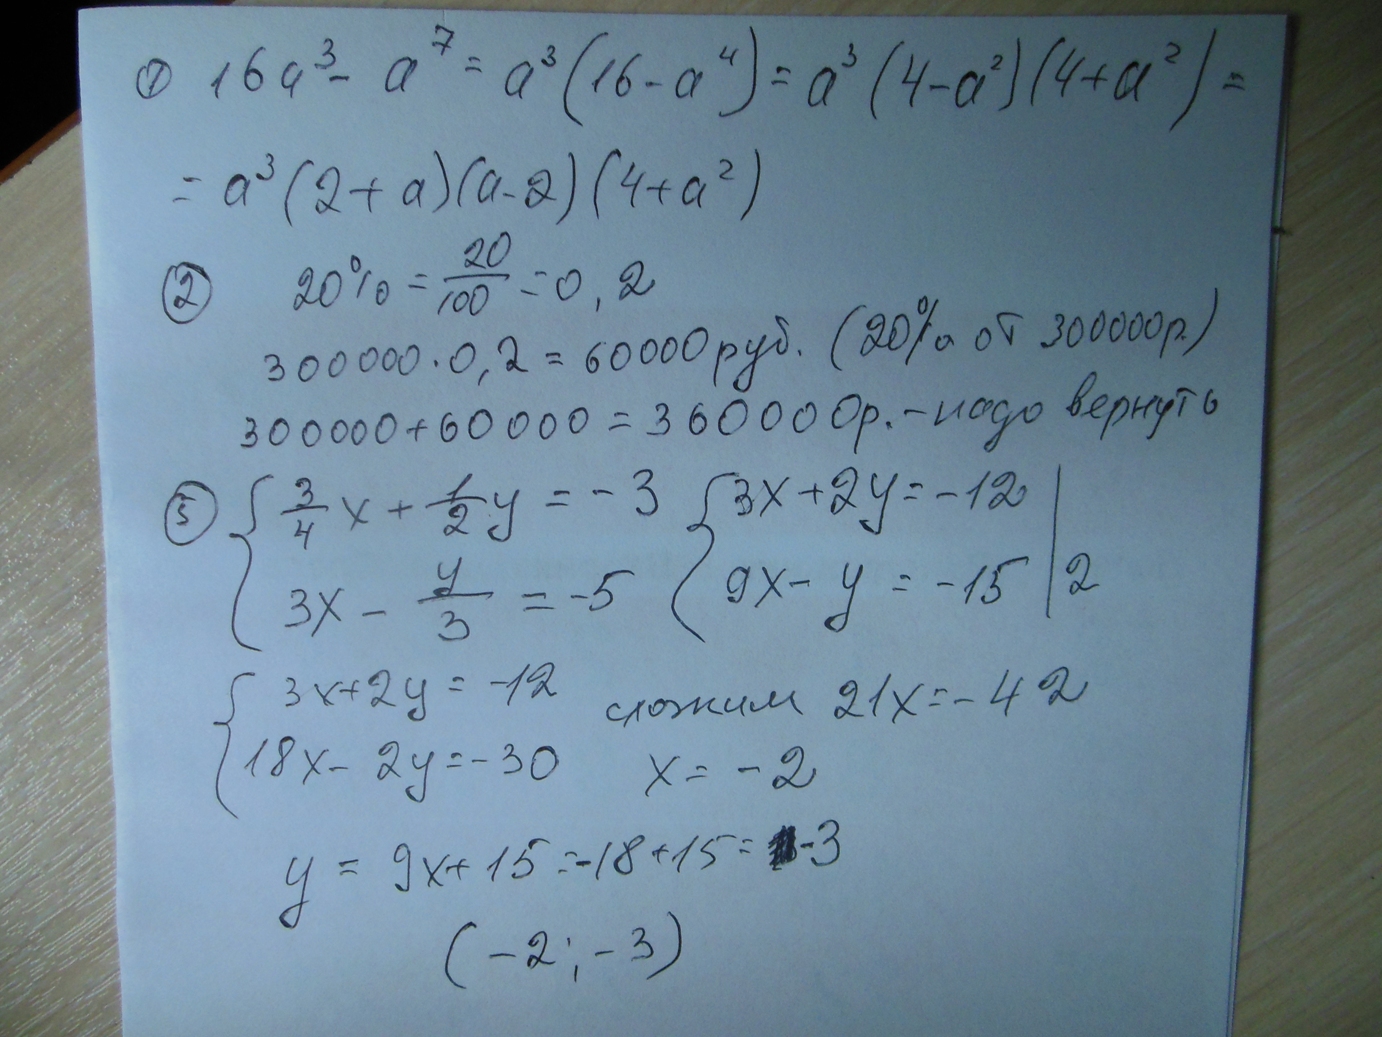 ① 16a³ - a⁷ = a³(16 - a⁴) = a³(4 - a²)(4 + a²) =
= a³(2 + a)(a - 2)(4 + a²)
② 20% = 20/100 = 0,2
300000 · 0,2 = 60000 руб. (20% от 300000р.)
300000 + 60000 = 360000р. - надо вернуть
⑤ { 3/4 x + 1/2 y = -3 { 3x + 2y = -12 |
3x - y/3 = -5 9x - y = -15 | 2
{ 3x + 2y = -12 сложим 21x = -42
18x - 2y = -30 x = -2
y = 9x + 15 = -18 + 15 = -3
(-2; -3)